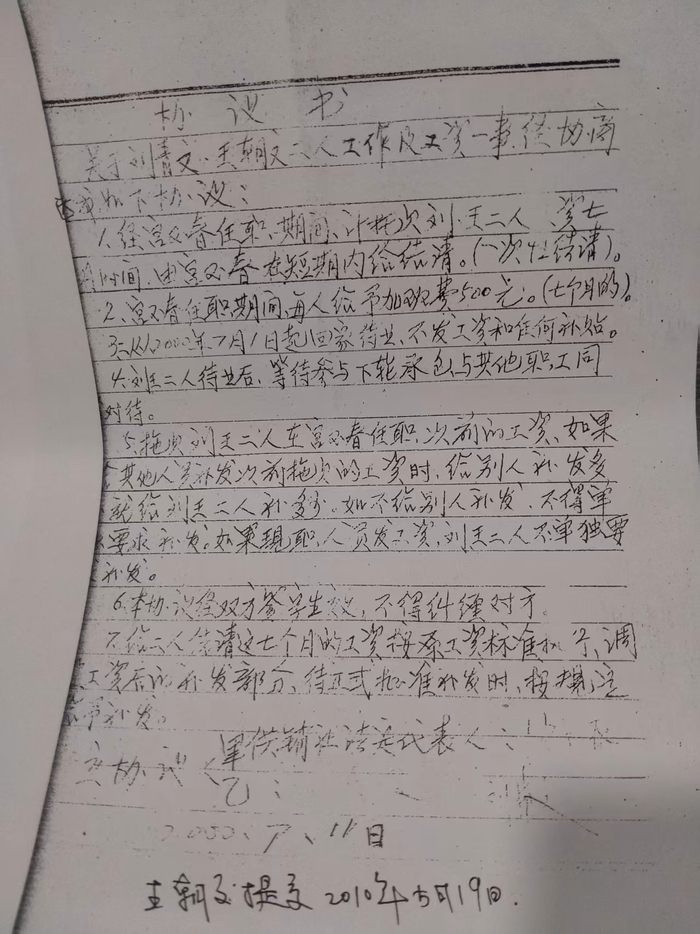 协议书
关于刘青文、王朝文二人工作及工资一事经协商
达成如下协议:
1、经宫文春任职期间,计拖欠刘、王二人 资七
月时间,由宫文春在短期内给结请。(一次性结请)。
2、宫文春任职期间每人给予加班费500元。(七个月的)。
3、从2000年7月1日起回家待业,不发工资和任何补贴。
4、刘王二人待业后,等待参与下轮承包与其他职工同
对待。
5、拖欠刘王二人在宫文春任职次前的工资,如果
其他人员补发次前拖欠的工资时,给别人补发多
就给刘王二人补多少。如不给别人补发,不得单
要求补发。如果现职人员发工资,刘王二人不单独要
补发。
6、本协议经双方签字生效,不得纠缠对方。
7、给二人结请这七个月的工资按原工资标准 ,调
工资后的补发部分,待正式批准补发时,按规定
补发。
协议 供销社法定代表人:
乙:
2000、7、11日
王朝文提交 2010年5月19日.